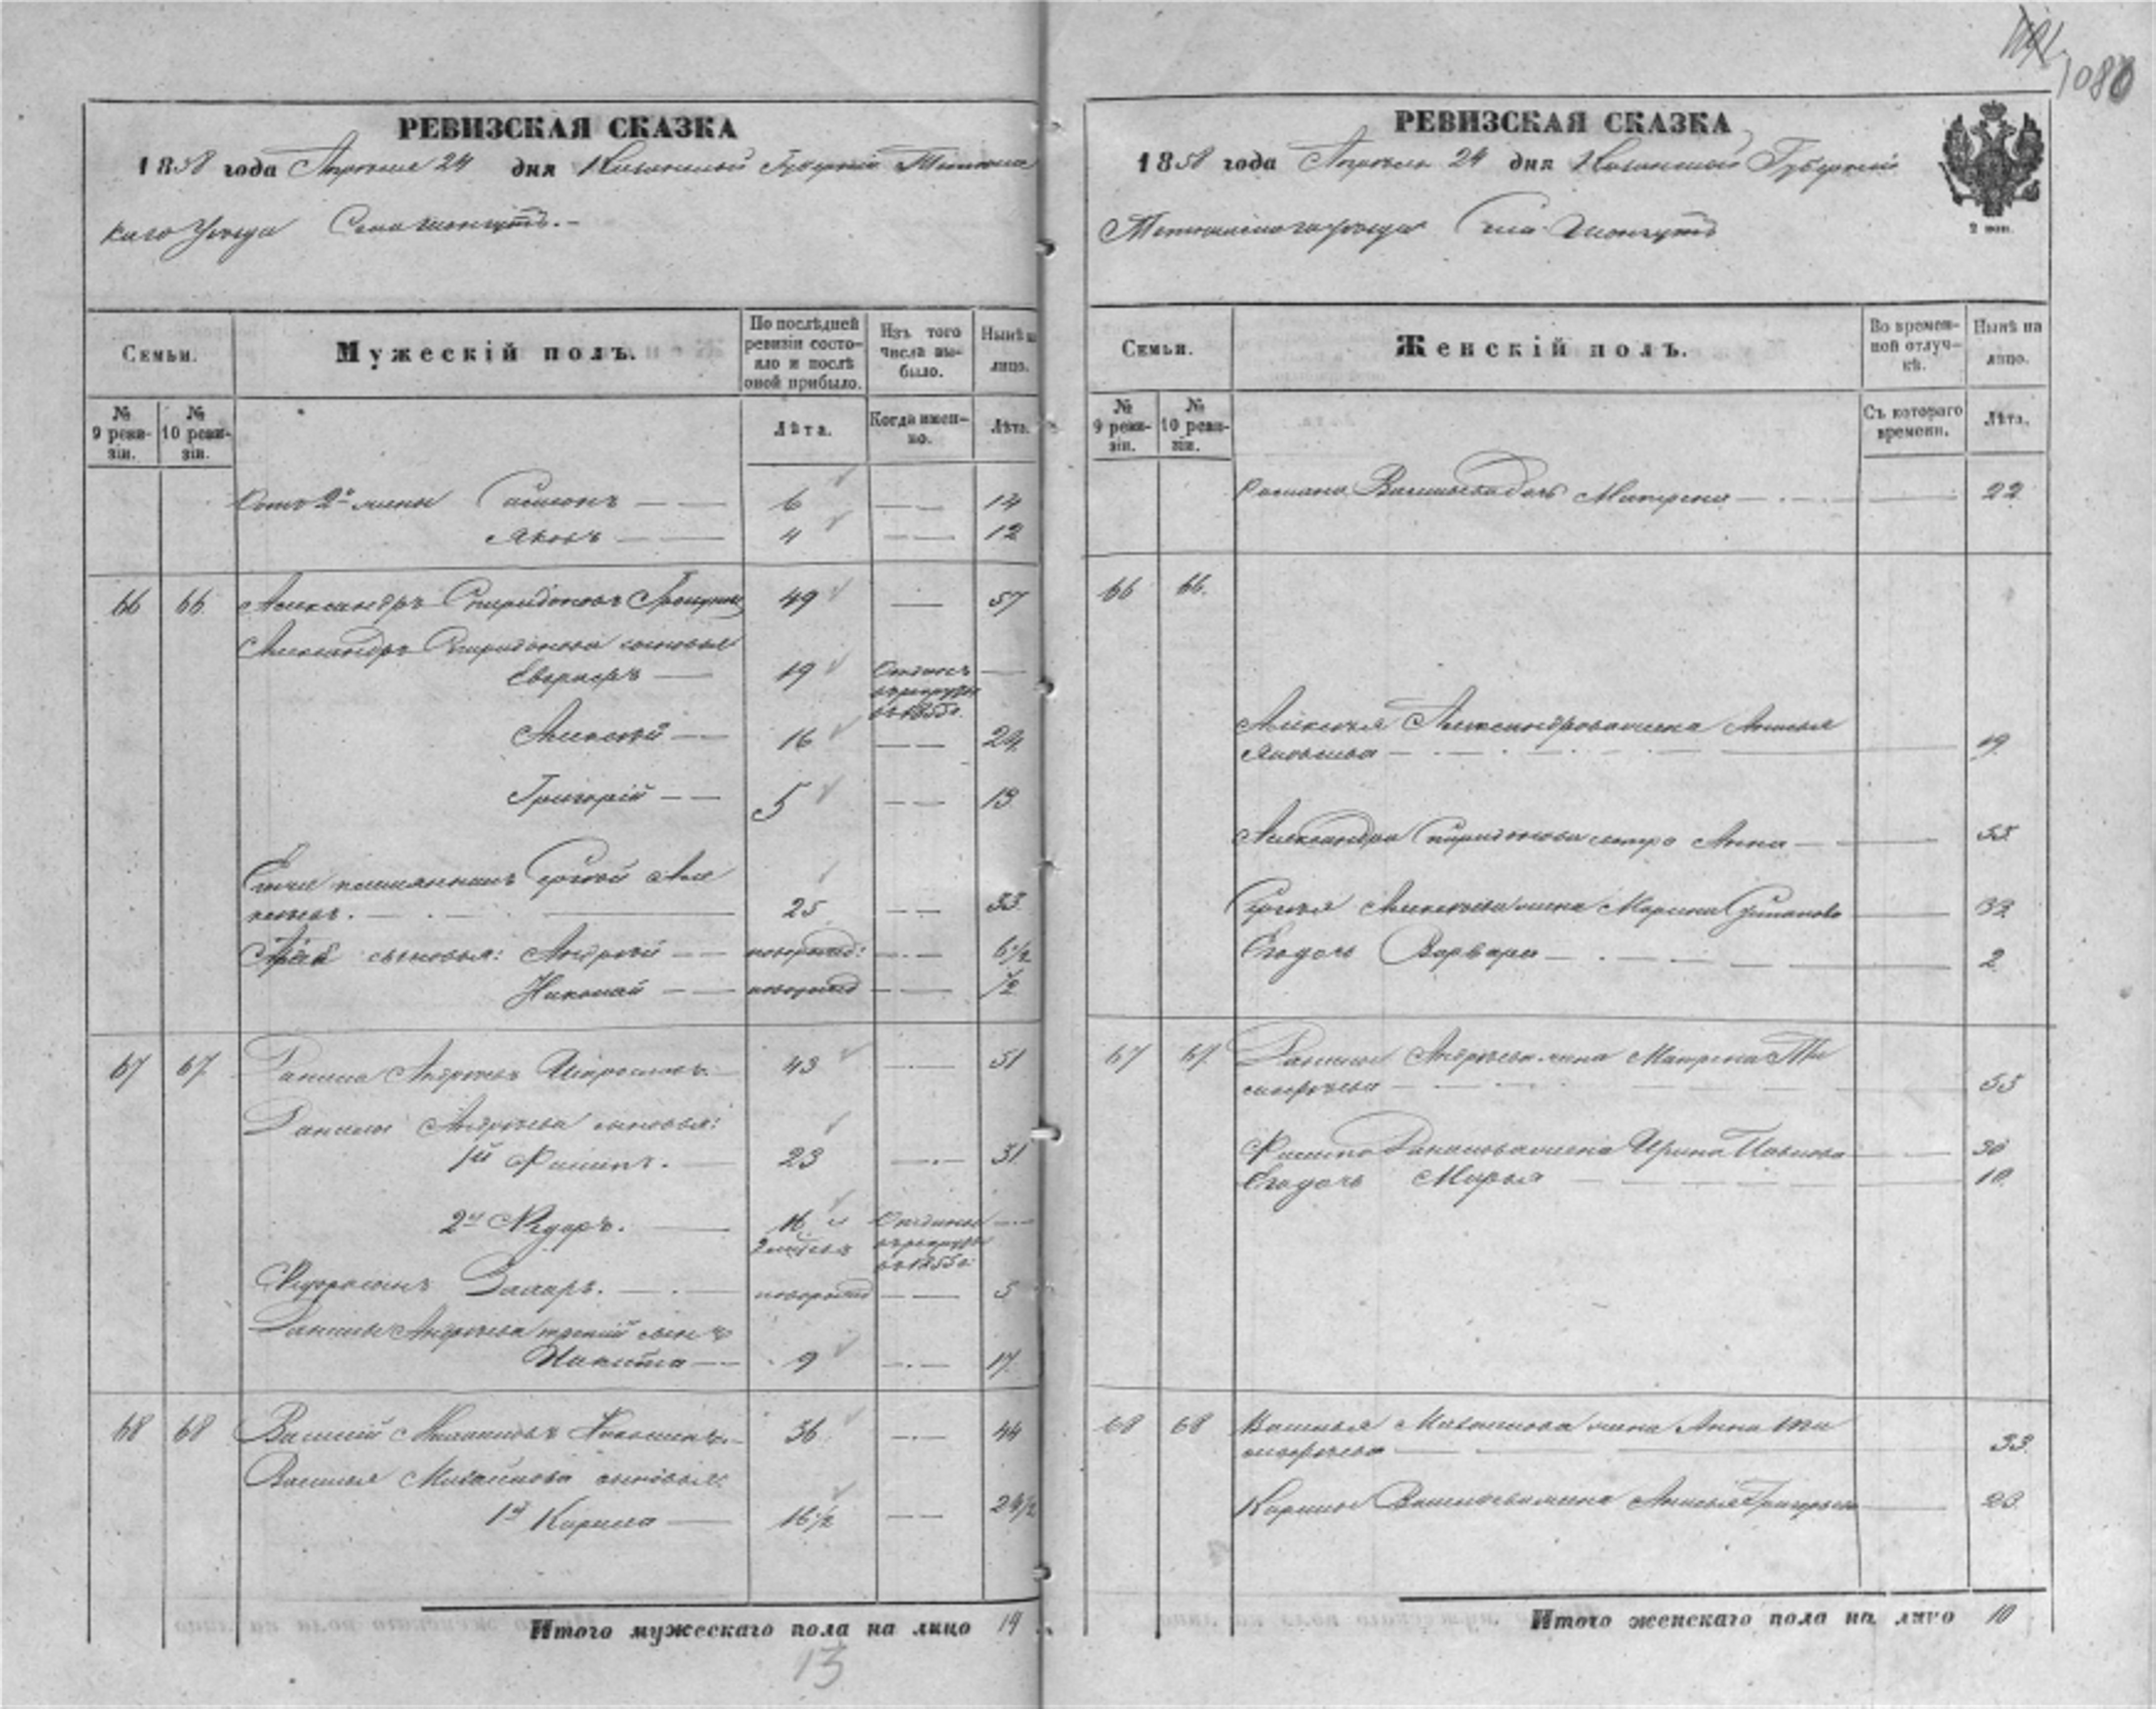 1080
РЕВИЗСКАЯ СКАЗКА
1858 года Апреля 24 дня Казанской Губернии Тетюшс
каго Уезда Села Шонгутъ.-
Семьи.
Мужескій полъ.
По послѣдней ревизіи состояло и послѣ оной прибыло.
Изъ того числа выбыло.
Нынѣ на лицо.
№ 9 ревизіи.
№ 10 ревизіи.
Лѣта.
Когда именно.
Лѣта.
2й жены Самсонъ 6 14
Яковъ 4 12
66 66 Александръ Спиридоновъ 49 57
Александра Спиридонова сыновья
19 Отданъ въ рекруты въ 1855 г.
Алексѣй 16 24
Григорій 5 13
племянникъ Сергѣй Але
ксѣевъ. 25 33
сыновья: Андрей новорожд: 6 1/2
Николай новорожд 1/2
67 67 Данила Андреевъ 43 51
Данилы Андреева сыновья:
1й Филипъ. 23 31
2й Ѳедоръ. 16 Отданъ въ рекруты въ 1855 г.
Ѳедора сынъ Захаръ. новорожд 5
Данилы Андреева третій сынъ
Никита 9 17
68 68 Василій Михайловъ 36 44
Василья Михайлова сыновья:
1й Кирила 16 1/2 24 1/2
Итого мужескаго пола на лицо 14
13
РЕВИЗСКАЯ СКАЗКА
1858 года Апреля 24 дня Казанской Губерніи
Тетюшскаго уезда Села Шонгутъ
2 коп.
Семьи.
Женскій полъ.
Во временной отлучкѣ.
Нынѣ на лицо.
№ 9 ревизіи.
№ 10 ревизіи.
Съ котораго времени.
Лѣта.
Романа Васильева дочь Матрена 22
66 66.
Алексѣя Александрова жена Анисья
Яковлева 19
Александра Спиридонова сестра Анна 55
Сергѣя Алексѣева жена Марина 33
Его дочь Варвара 2
67 67 Данилы Андреева жена Матрена Ти
мофеева 55
Филипа Данилова жена Ирина Павлова 30
Его дочь Марья 10
68 68 Василья Михайлова жена Анна Ти
мофеева 33
Кирилы Васильева жена Анисья Григорьева 23
Итого женскаго пола на лицо 10